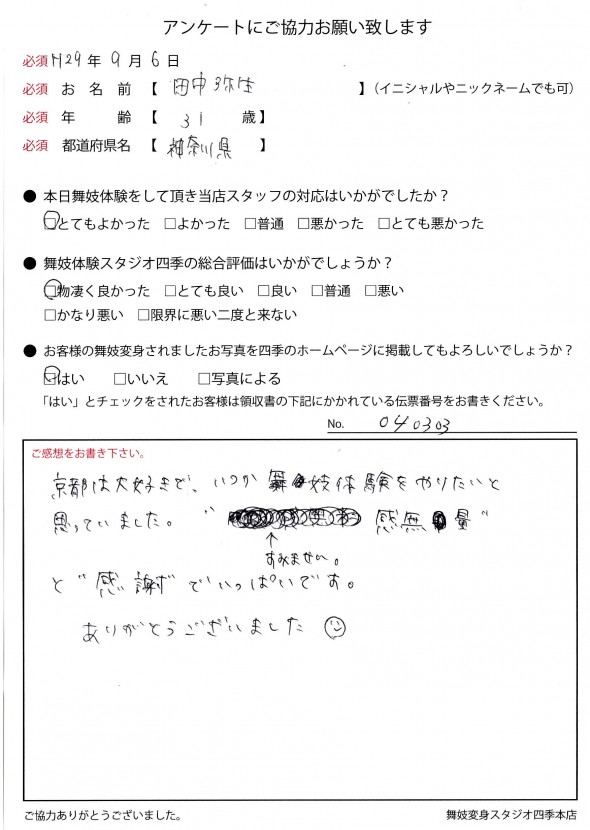 アンケートにご協力お願い致します
必須 H29年 9月 6日
必須 お名前【 田中弥生 】(イニシャルやニックネームでも可)
必須 年 齢【 31 歳】
必須 都道府県名【 神奈川県 】
● 本日舞妓体験をして頂き当店スタッフの対応はいかがでしたか?
□とてもよかった □よかった □普通 □悪かった □とても悪かった
● 舞妓体験スタジオ四季の総合評価はいかがでしょうか?
□物凄く良かった □とても良い □良い □普通 □悪い
□かなり悪い □限界に悪い二度と来ない
● お客様の舞妓変身されましたお写真を四季のホームページに掲載してもよろしいでしょうか?
□はい □いいえ □写真による
「はい」とチェックをされたお客様は領収書の下記にかかれている伝票番号をお書きください。
No. 040303
ご感想をお書き下さい。
京都は大好きで、いつか舞妓体験をやりたいと
思っていました。“ 感無量”
↑
すみません。
と“感謝”でいっぱいです。
ありがとうございました
ご協力ありがとうございました。
舞妓変身スタジオ四季本店